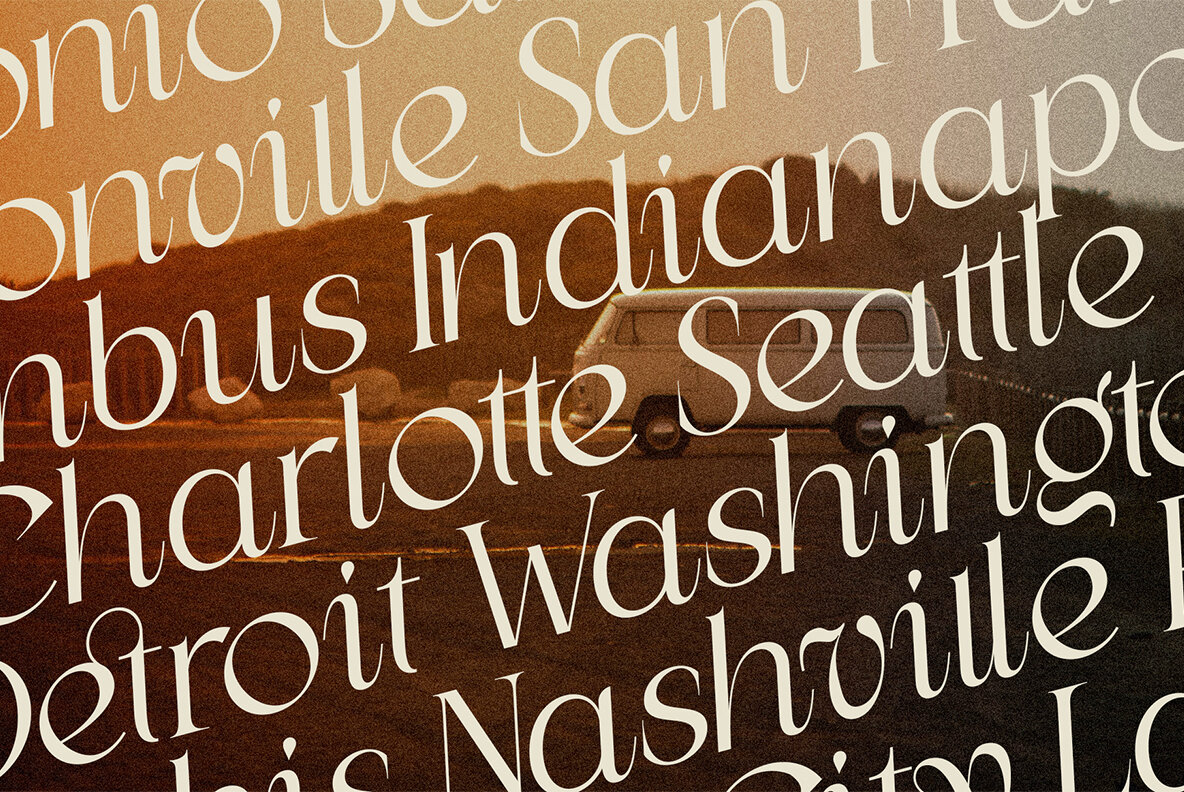 onio Sa
onville San Fra
mbus Indianapo
Charlotte Seattle
Detroit Washingto
his Nashville
City Lo